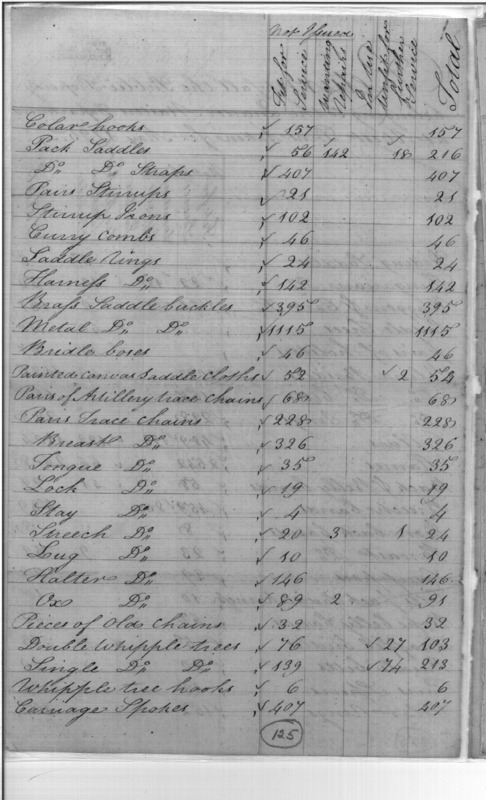 Not Issued
Fit for Service
Wanting Repairs
In Use
Unfit for further Service
Total
Colar hooks 157 157
Pack Saddles 56 142 18 216
Do,, Do,, Straps 407 407
Pairs Stirrups 21 21
Stirrup Irons 102 102
Curry Combs 46 46
Saddle Rings 24 24
Harness Do,, 142 142
Brass Saddle buckles 395 395
Metal Do,, Do,, 1115 1115
Bridle boses 46 46
Painted canvas Saddle Cloths 52 2 54
Pairs of Artillery trace chains 68 68
Pairs Trace chains 228 228
Breast Do,, 326 326
Tongue Do,, 35 35
Lock Do,, 19 19
Stay Do,, 4 4
Streech Do,, 20 3 1 24
Lug Do,, 10 10
Halter Do,, 146 146
Ox Do,, 89 2 91
Pieces of Old Chains 32 32
Double Whipple trees 76 27 103
Single Do,, Do,, 139 74 213
Whipple tree hooks 6 6
Carriage Spokes 407 407
125